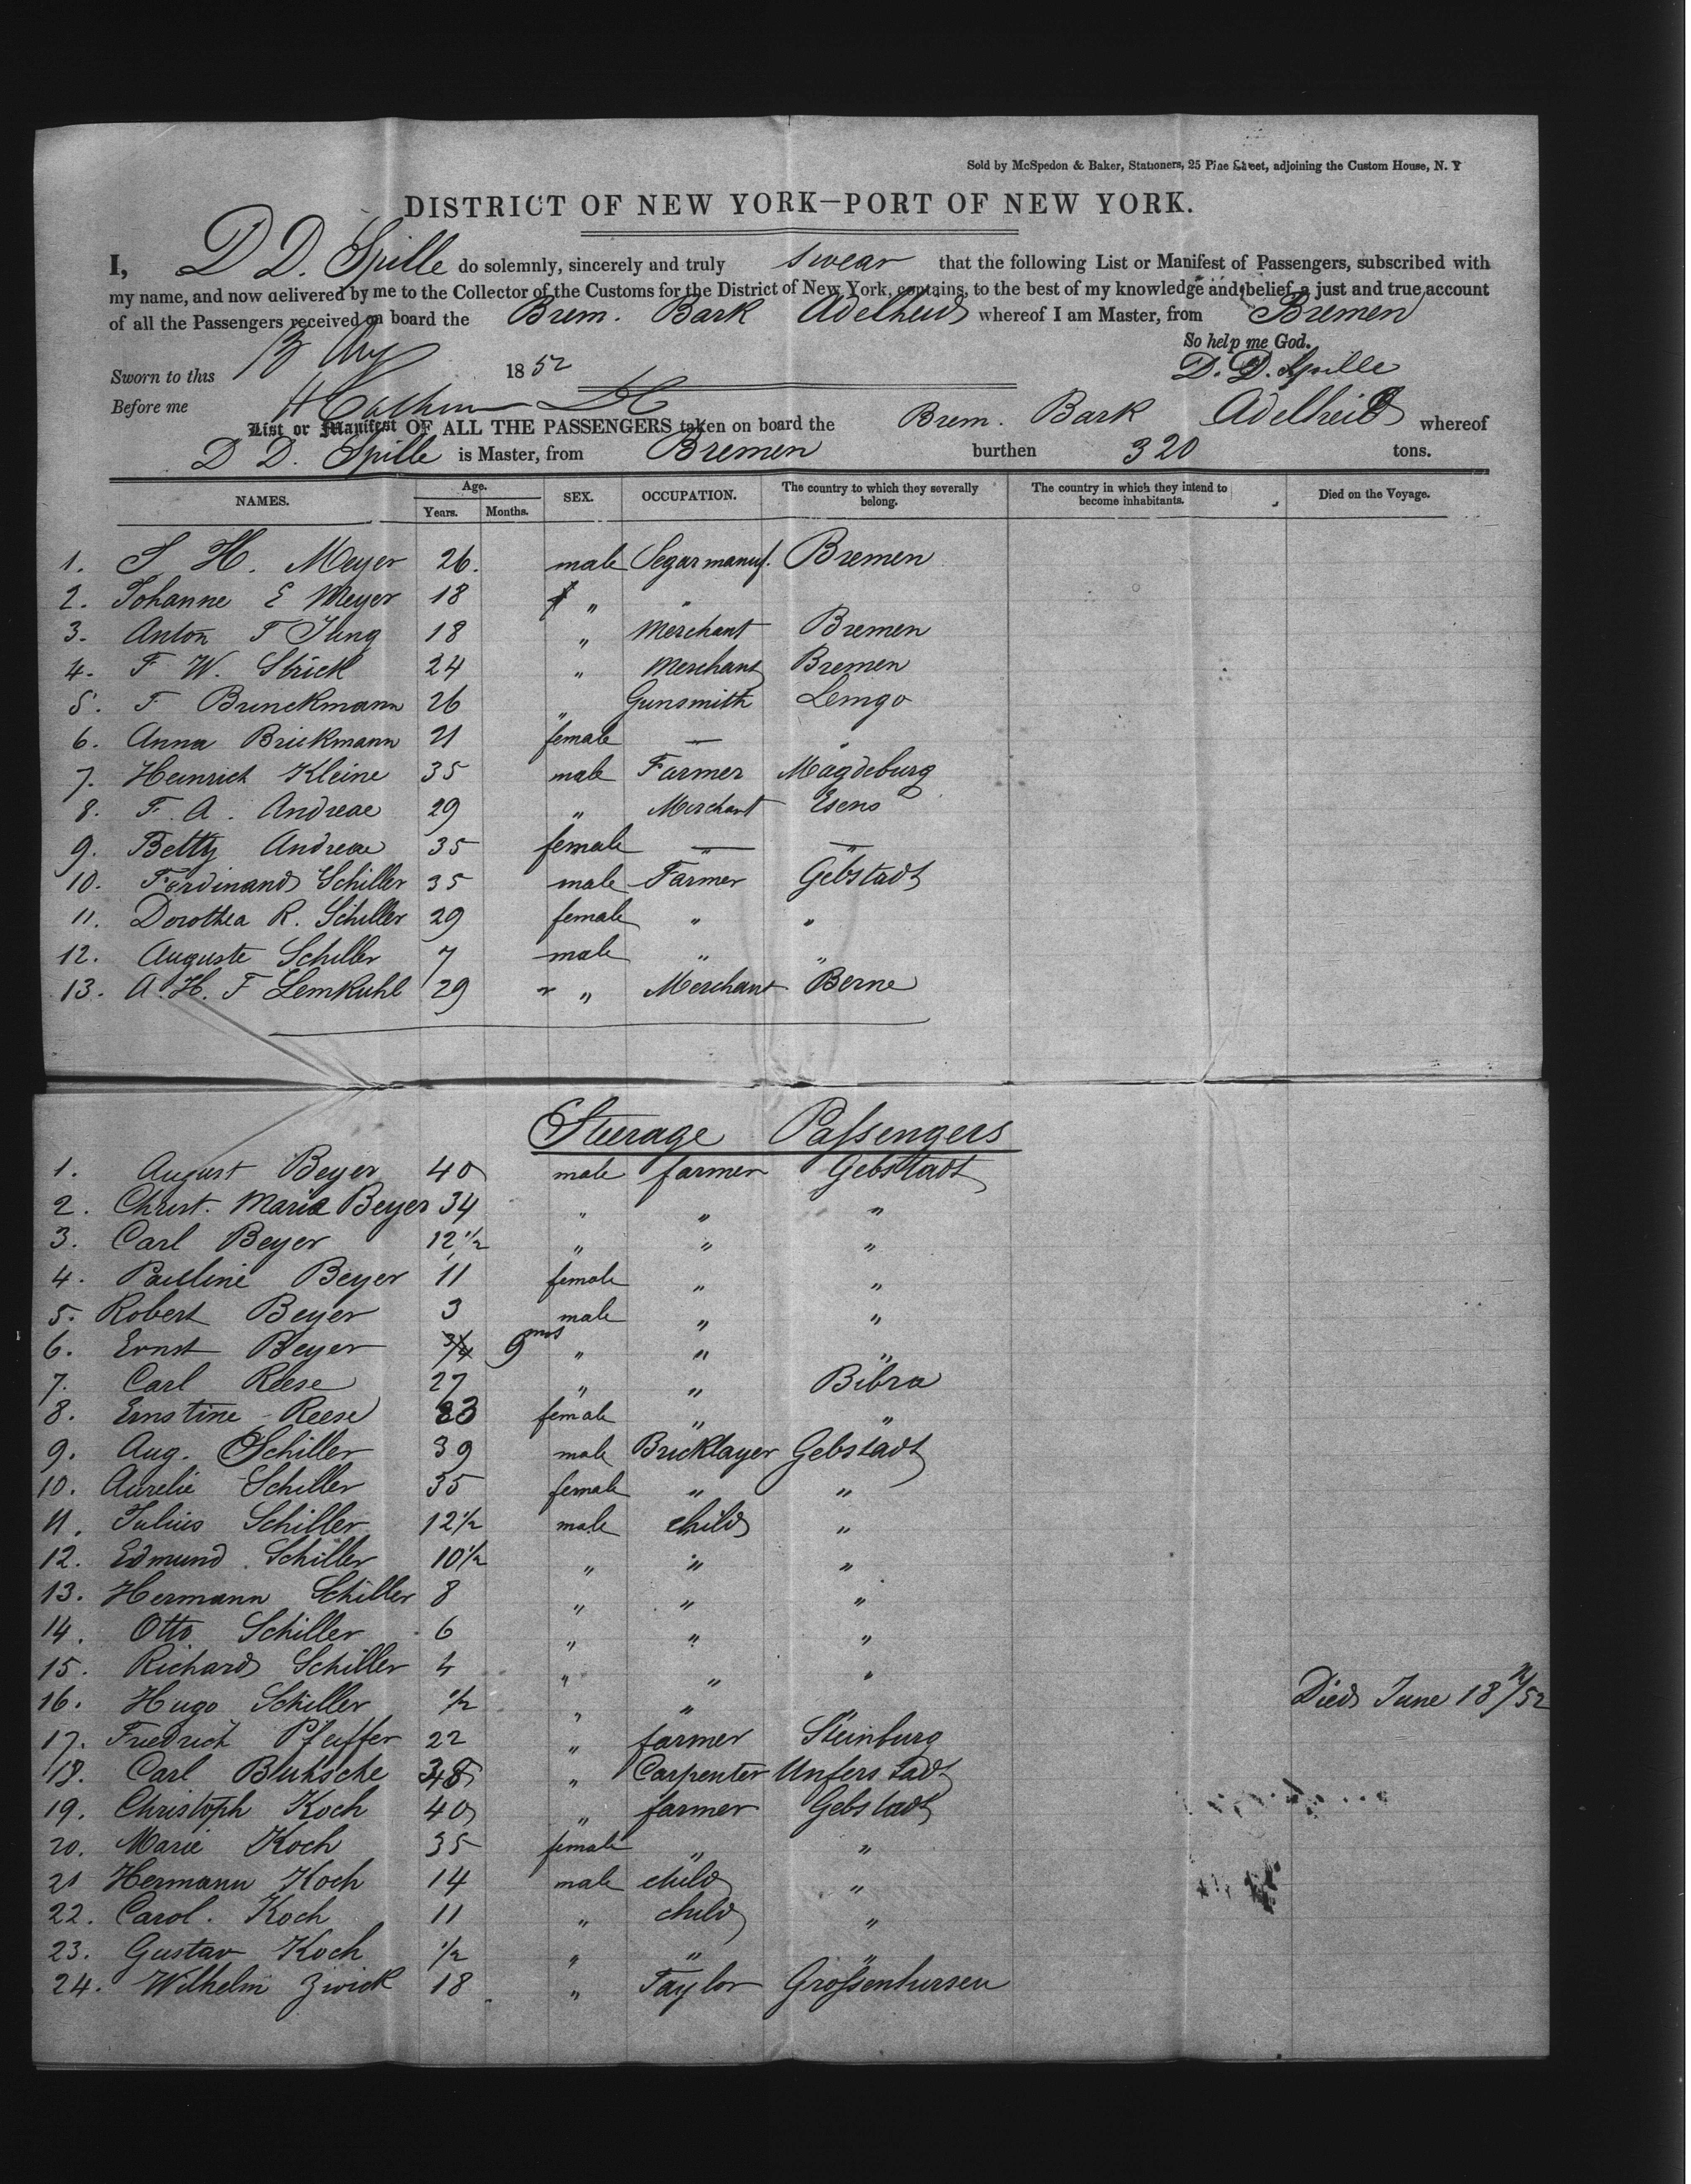 Sold by McSpedon & Baker, Stationers, 25 Pine Street, adjoining the Custom House, N. Y
DISTRICT OF NEW YORK—PORT OF NEW YORK.
I, D D. Spille do solemnly, sincerely and truly swear that the following List or Manifest of Passengers, subscribed with
my name, and now delivered by me to the Collector of the Customs for the District of New York, contains, to the best of my knowledge and belief, a just and true account
of all the Passengers received on board the Brem. Bark Adelheid whereof I am Master, from Bremen
So help me God.
Sworn to this 1852 D. D. Spille
Before me
List or Manifest OF ALL THE PASSENGERS taken on board the Brem. Bark Adelheid whereof
D D. Spille is Master, from Bremen burthen 320 tons.
NAMES. Age. Years. Months. SEX. OCCUPATION. The country to which they severally belong. The country in which they intend to become inhabitants. Died on the Voyage.
1. H. Meyer 26. male Segarmanuf. Bremen
2. Johanne E Meyer 18 f " "
3. Anton F Jung 18 " Merchant Bremen
4. F W. Strick 24 " Merchant Bremen
5. F Brinckmann 26 " Gunsmith Lemgo
6. Anna Brickmann 21 female — "
7. Heinrich Kleine 35 male Farmer Magdeburg
8. F. A. Andreae 29 " Merchant Esens
9. Betty Andreae 35 female — " — "
10. Ferdinand Schiller 35 male Farmer Gebstadt
11. Dorothea R. Schiller 29 female " "
12. Auguste Schiller 7 male " "
13. A. H. F Lemkuhl 29 " Merchant Berne
Steerage Passengers
1. August Beyer 40 male farmer Gebstadt
2. Christ. Maria Beyer 34 " " "
3. Carl Beyer 12 1/2 " " "
4. Pauline Beyer 11 female " "
5. Robert Beyer 3 male " "
6. Ernst Beyer 3/4 9 mos " " "
7. Carl Reese 27 " " Bibra
8. Ernstine Reese 23 female " "
9. Aug. Schiller 39 male Bricklayer Gebstadt
10. Aurelie Schiller 35 female " "
11. Julius Schiller 12 1/2 male child "
12. Edmund Schiller 10 1/2 " " "
13. Hermann Schiller 8 " " "
14. Otto Schiller 6 " " "
15. Richard Schiller 4 " " "
16. Hugo Schiller 1/2 " " " Died June 18 /52
17. Friedrich Pfeiffer 22 " farmer Steinburg
18. Carl " Carpenter
19. Christoph Koch 40 " farmer Gebstadt
20. Marie Koch 35 female " "
21 Hermann Koch 14 male child "
22. Carol. Koch 11 " child "
23. Gustav Koch 1/2 " " "
24. Wilhelm Zwick 18 " Taylor